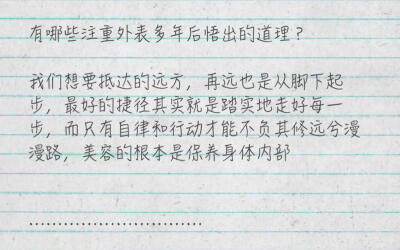 有哪些注重外表多年后悟出的道理？
我们想要抵达的远方，再远也是从脚下起
步，最好的捷径其实就是踏实地走好每一
步，而只有自律和行动才能不负其修远兮漫
漫路，美容的根本是保养身体内部
................................